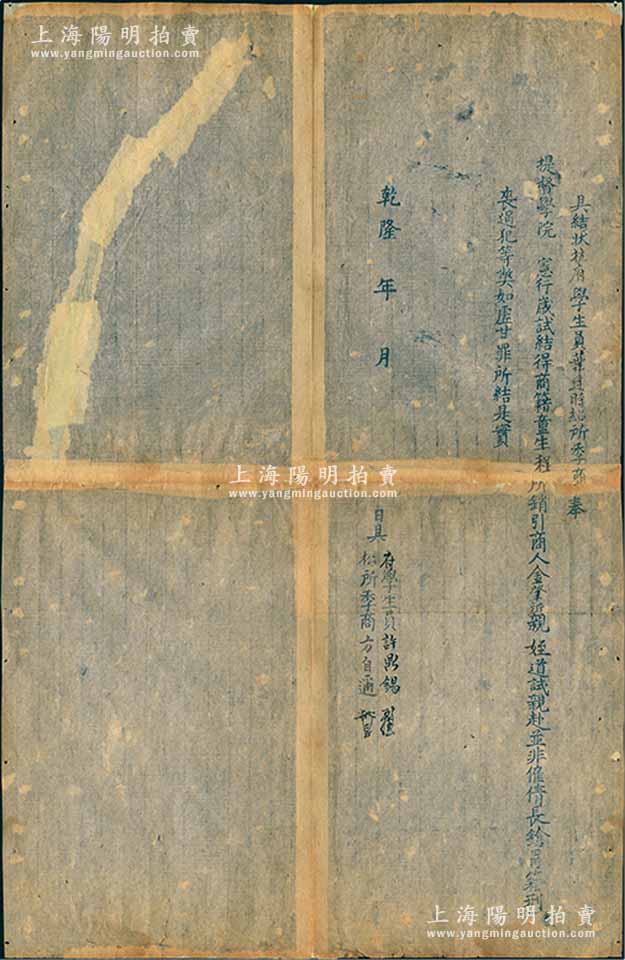 上海陽明拍賣
www.yangmingauction.com
具結狀杭府學生員葉 紹所季商 奉
提督學院 憲行歲試結得商籍童生程 所銷引商人金肇新親姪道試親赴並非僱倩長鎗冒籍刑
喪過犯等獘如虛甘罪所結是實
乾隆 年 月 日具
府學生員許鼎錫
松所季商方自通
上海陽明拍賣
www.yangmingauction.com
上海陽明拍賣
www.yangmingauction.com